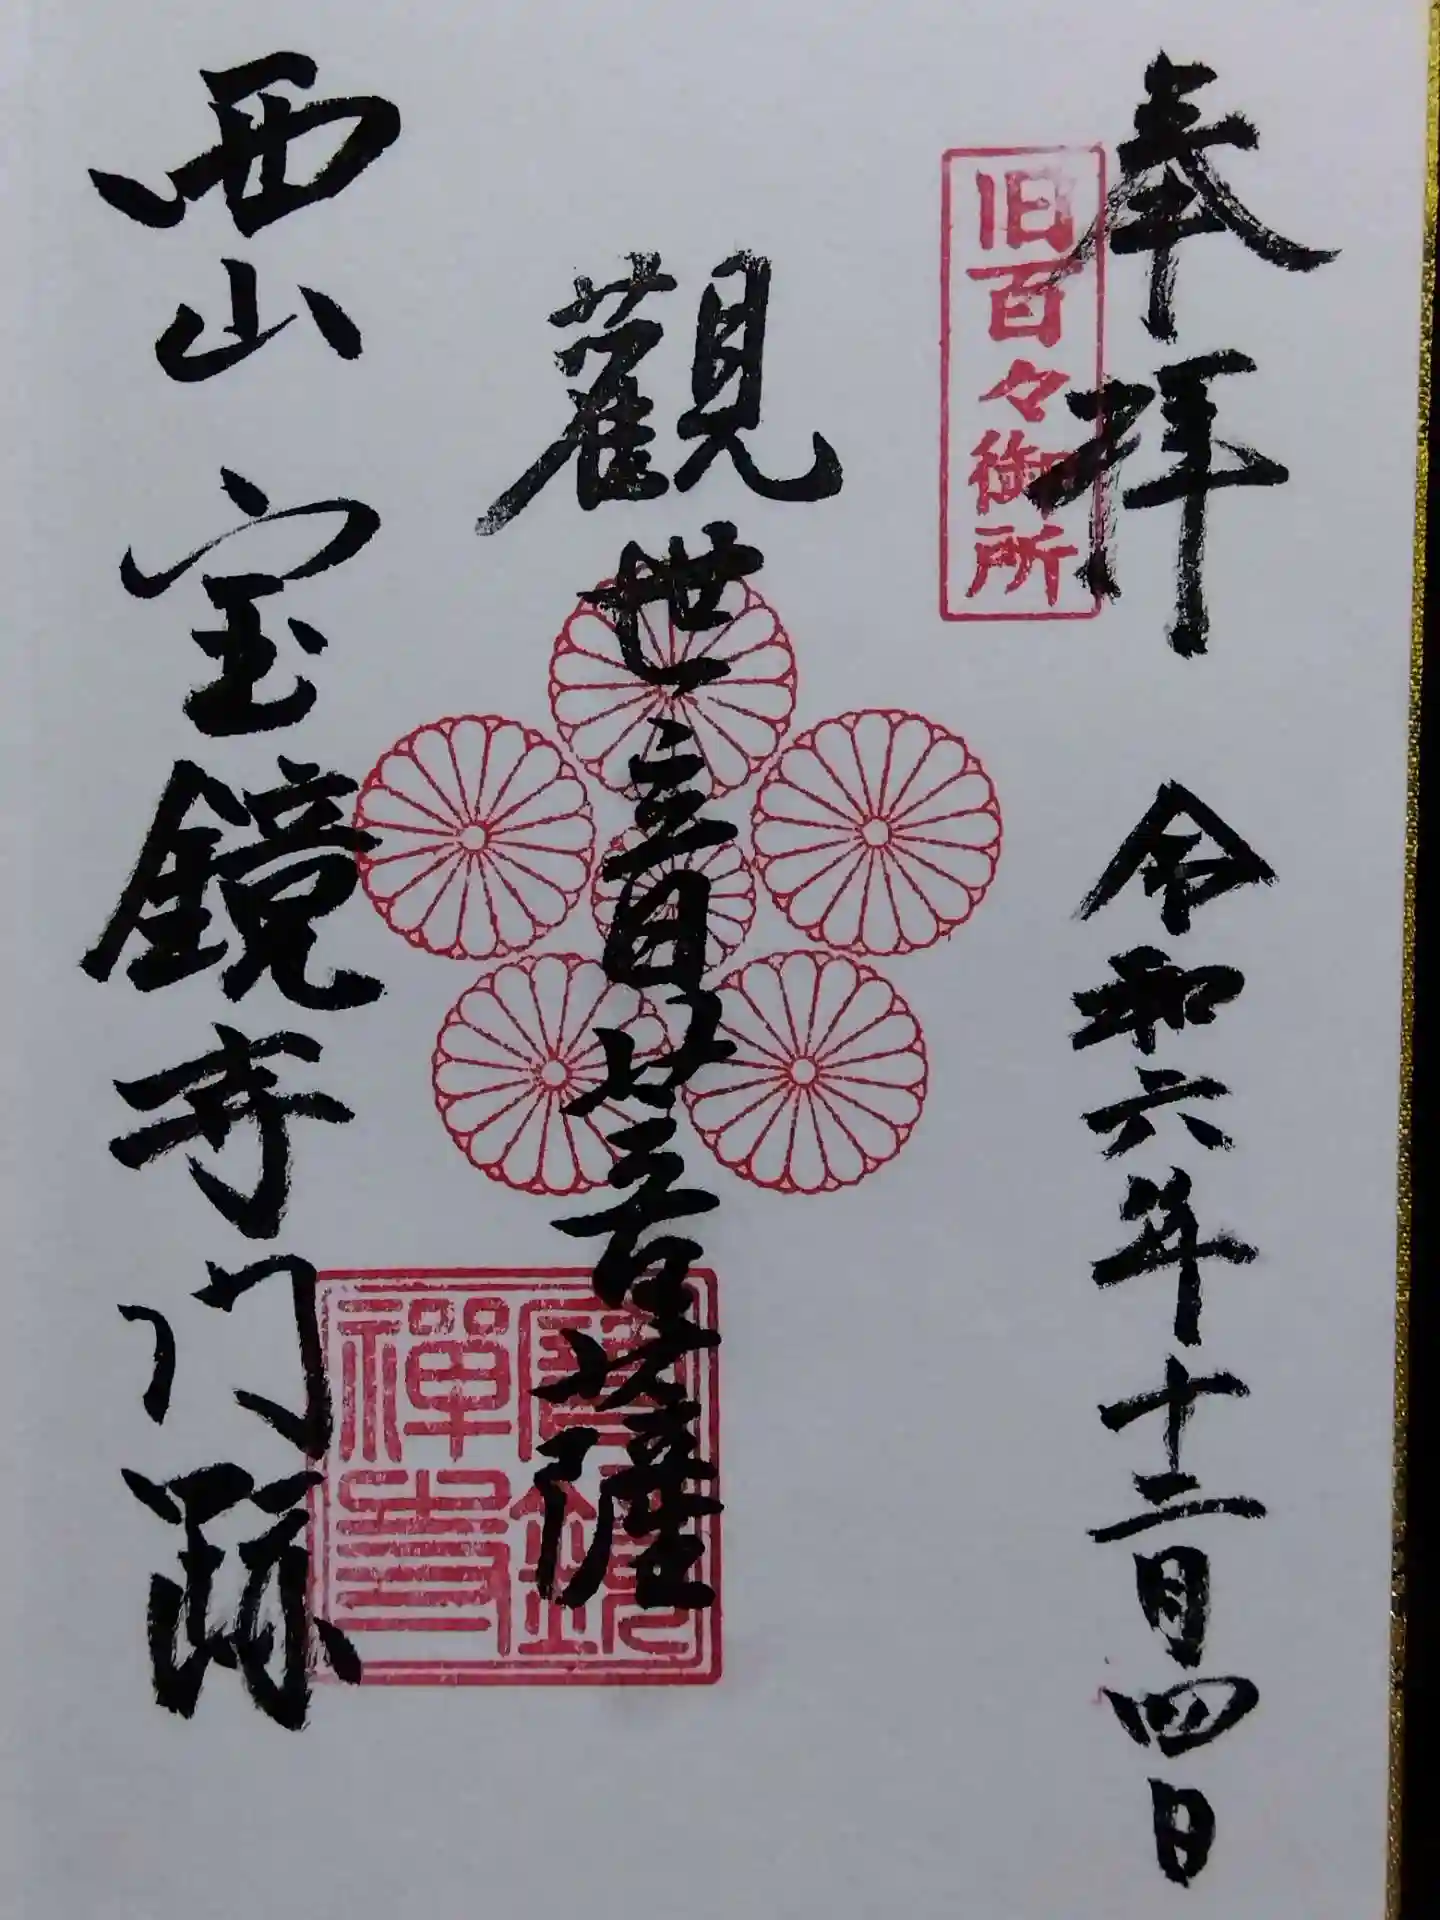 奉拝 令和六年十二月四日
旧百々御所
觀世音菩薩
西山 宝鏡寺門跡
寶鏡禅寺